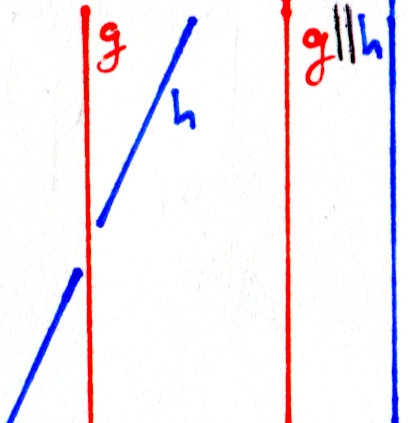 g
h
g||h